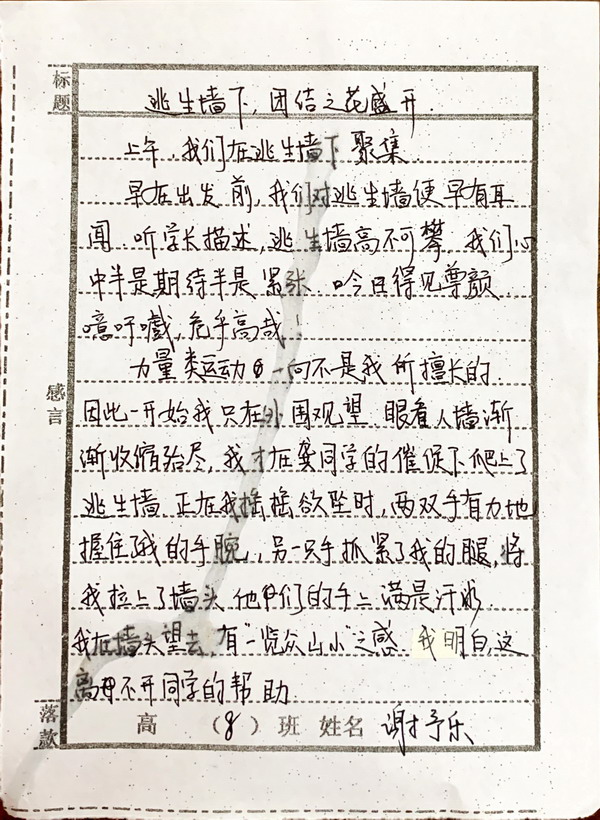 标题
逃生墙下，团结之花盛开
上午，我们在逃生墙下聚集
早在出发前，我们对逃生墙便早有耳
闻 听学长描述，逃生墙高不可攀 我们心
中半是期待半是紧张 今日得见尊颜
噫吁嚱，危乎高哉！
感言
力量类运动一向不是我所擅长的
因此一开始我只在外围观望 眼看人墙渐
渐收缩殆尽，我才在龚同学的催促下爬上了
逃生墙 正在我摇摇欲坠时，两双手有力地
握住了我的手腕，另一只手抓紧了我的腿，将
我拉上了墙头 他们的手上满是汗水
我在墙头望去，有“一览众山小”之感 我明白，这
离不开同学的帮助
落款
高 （8）班 姓名 谢予乐